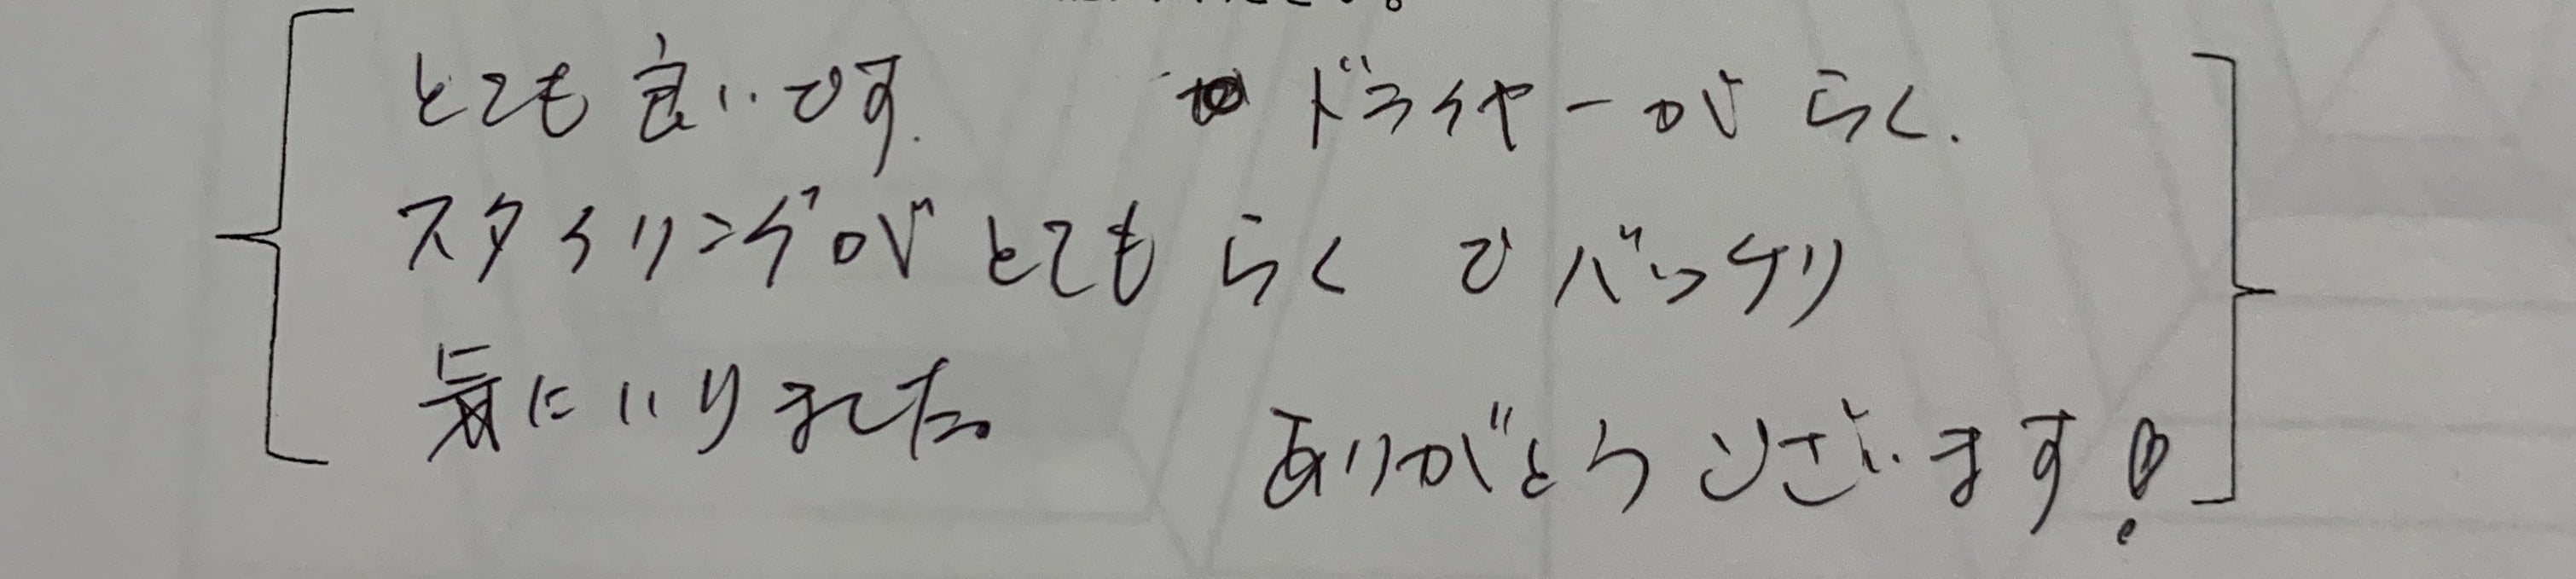 とても良いです. ドライヤーがらく.
スタイリングがとてもらくでバッチリ
気にいりました。
ありがとうございます!